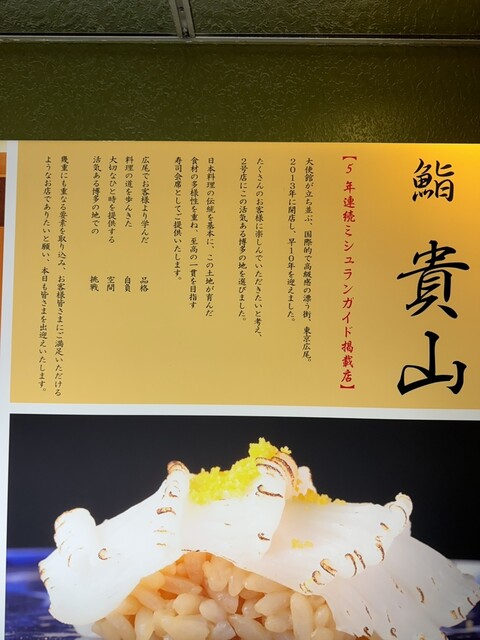 鮨 貴山
【5年連続ミシュランガイド掲載店】
大使館が立ち並ぶ、国際的で高級感の漂う街、東京広尾。
2013年に開店し、早10年を迎えました。
たくさんのお客様に楽しんでいただきたいと考え、
2号店にこの活気ある博多の地を選びました。
日本料理の伝統を基本に、この土地が育んだ
食材の多様性を重ね、至高の一貫を目指す
寿司会席としてご提供いたします。
広尾でお客様より学んだ 品格
料理の道を歩んきた 自負
大切なひと時を提供する 空間
活気ある博多の地での 挑戦
幾重にも重なる要素を取り込み、お客様皆さまにご満足いただける
ようなお店でありたいと願い、本日も皆さまを出迎えいたします。